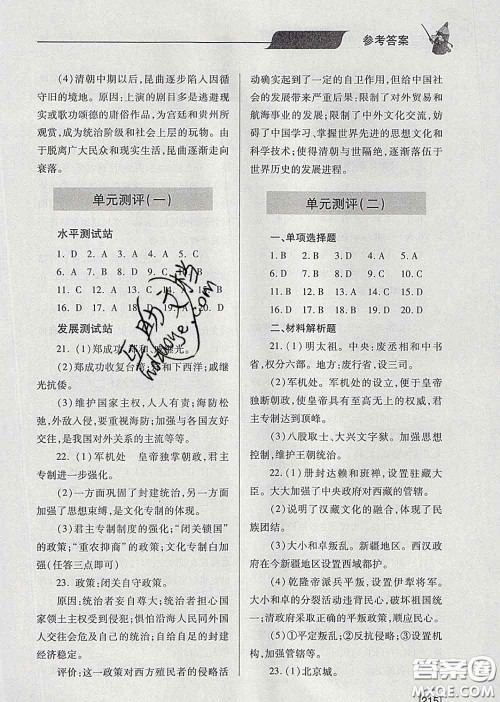 参考答案
(4)清朝中期以后，昆曲逐步陷入因循
守旧的境地。原因：上演的剧目多是逃避现
实或歌功颂德的庸俗作品，仅为宫廷和贵州
所观赏，成为统治阶级和社会上层的玩物。由
于脱离广大民众和现实生活，昆曲逐渐走向
衰落。
单元测评(一)
水平测试站
1. D 2. A 3. A 4. A 5. C
6. A 7. D 8. B 9.
11. C 12. C 13. 15. C
16. D 17. D 18. 20. D
发展测试站
21. (1)郑成功、郑和、戚继光。
(2)郑成功收复台湾；郑和下西洋；戚继光
抗倭。
(3)维护国家主权，人人有责；海防松
弛，外敌入侵，要重视海防；加强与各国友好
交往，是我国对外关系的主流等等。
22. (1)军机处 皇帝独掌朝政，君主
专制进一步强化。
(2)一方面巩固了封建统治，另一方面
加强了思想束缚，是文化专制的体现。
(3)君主专制制度的强化；“闭关锁国”
的政策；“重农抑商”的政策；文化专制白加
强(任答三点即可)
23. 政策：闭关自守政策。
原因：统治者妄自尊大；统治者担心国
家领土主权受到侵犯，惧怕沿海人民同外国
人交往会危及自己的统治；自给自足的封建
经济稳定。
评价：这一政策对西方殖民者的侵略活
动确实起到了一定的自卫作用，但给中国社
会的发展带来严重后果：限制了对外贸易和
航海事业的发展；限制了中外文化交流，妨
碍了中国学习、掌握世界先进的思想文化和
科学技术；使得清朝与世隔绝，逐渐落伍于
世界历史的发展进程。
单元测评(二)
一、单项选择题
1. B 2. B 3. A 4. C 5. B
6. D 7. D 8. D 9. A 10. C
11. B 12. D 13. D 14. D 15. B
16. D 17. C 18. D 19. B 20. D
二、材料解析题
21. (1)明太祖。中央：废丞相和中书
省，权分六部。地方：废行省，设三司。
(2)军机处。军机处的设立，便于皇帝
独断朝政，使皇帝具有至高无上的权威，君
主独裁达到顶峰。
(3)八股取士、大兴文字狱。加强思想
统治，维护王朝统治。
22. (1)册封达赖和班禅，设置驻藏大
臣。大大加强了中央政府对西藏的管辖。
(2)说明了汉藏文化的融合，体现了民
族团结。
(3)大小和卓叛乱。新疆地区。西汉政
府在今新疆地区设置西域都护。
(4)乾隆帝派兵平叛，维护国家统一。
大小和卓的分裂活动违背民心，破坏祖国统
一；清政府采取正确的平叛政策，赢得了民
心。
(5)①平定叛乱；②反抗侵略；③设置机
构，加强管辖等。
23. (1)北京城。
215
答案圈
MXQE.COM
互助文档